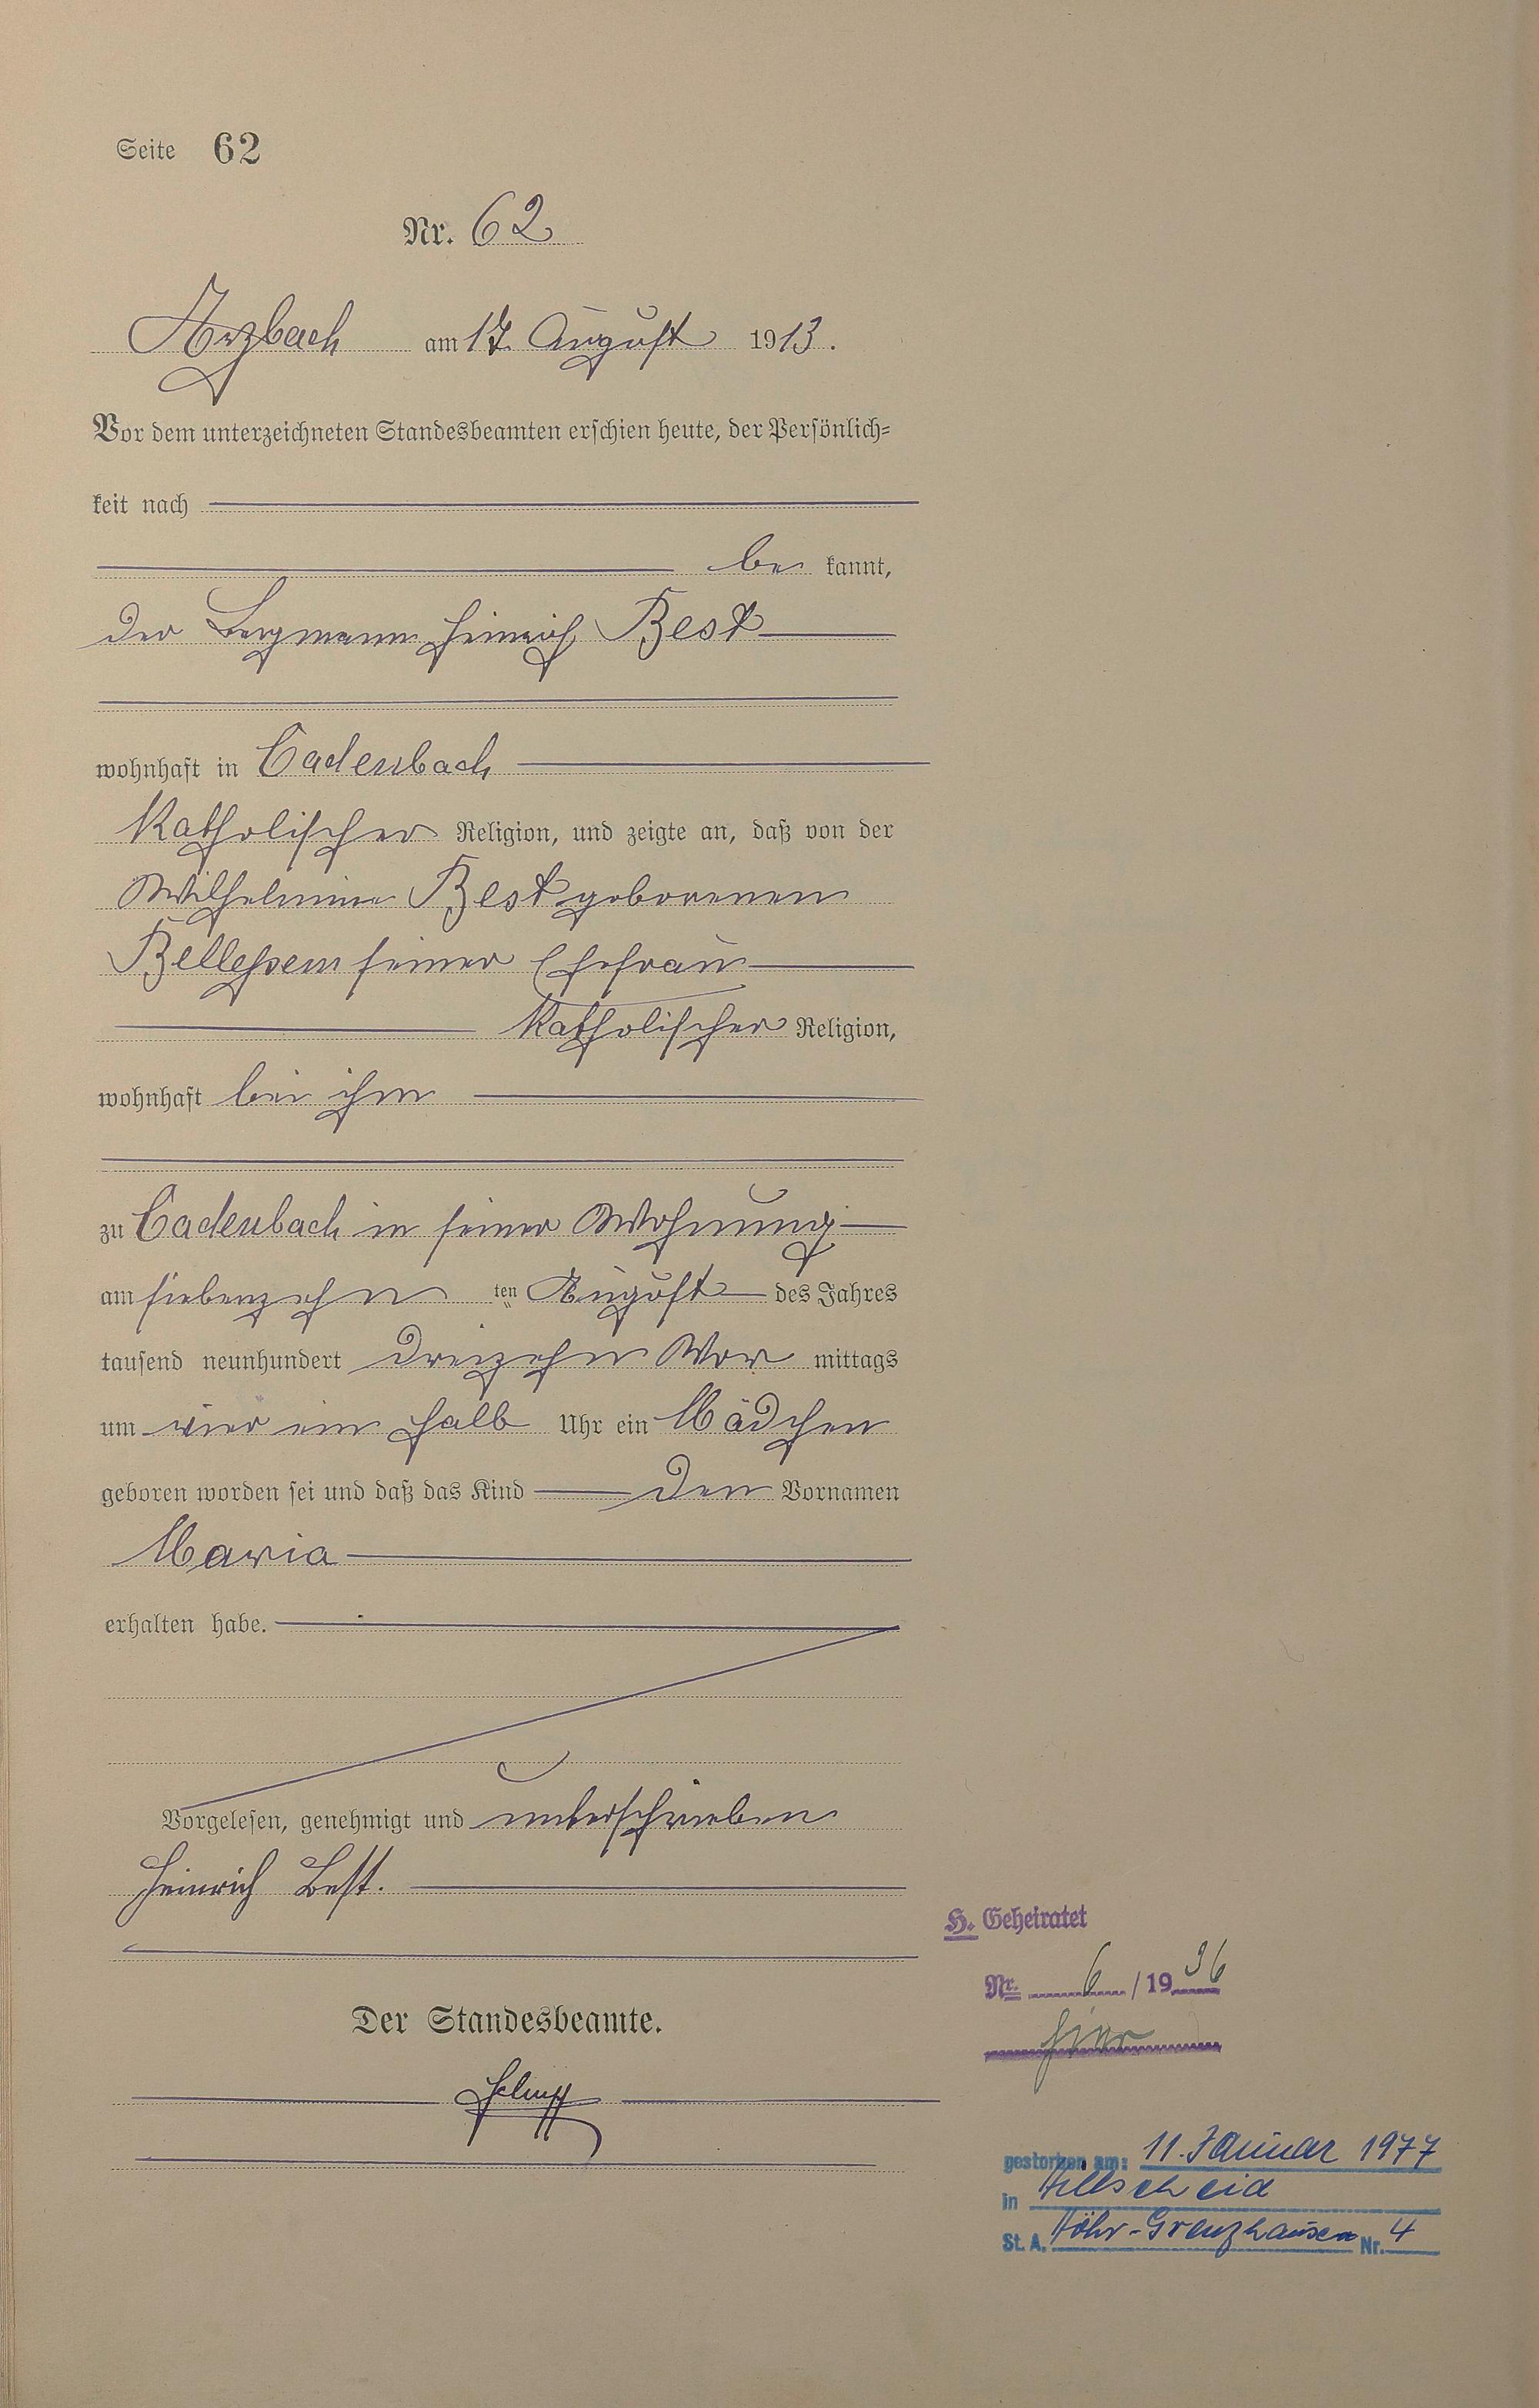 Seite 62
Nr. 62
Arzbach am 17. August 1913.
Vor dem unterzeichneten Standesbeamten erschien heute, der Persönlich=
keit nach
be kannt,
der Bergmann Heinrich Best
wohnhaft in Cadenbach
Katholischer Religion, und zeigte an, daß von der
Wilhelmine Best geborenen
seiner Ehefrau
Katholischer Religion,
wohnhaft bei ihm
zu Cadenbach in seiner Wohnung
am siebenzehn ten August des Jahres
tausend neunhundert dreizehn Vor mittags
um vier ein halb Uhr ein Mädchen
geboren worden sei und daß das Kind den Vornamen
Maria
erhalten habe.
Vorgelesen, genehmigt und unterschrieben
Heinrich Best.
Der Standesbeamte.
H. Geheiratet
Nr. 6 / 1936
hier
gestorben am: 11. Januar 1977
in Hillscheid
St. A. Höhr-Grenzhausen Nr. 4